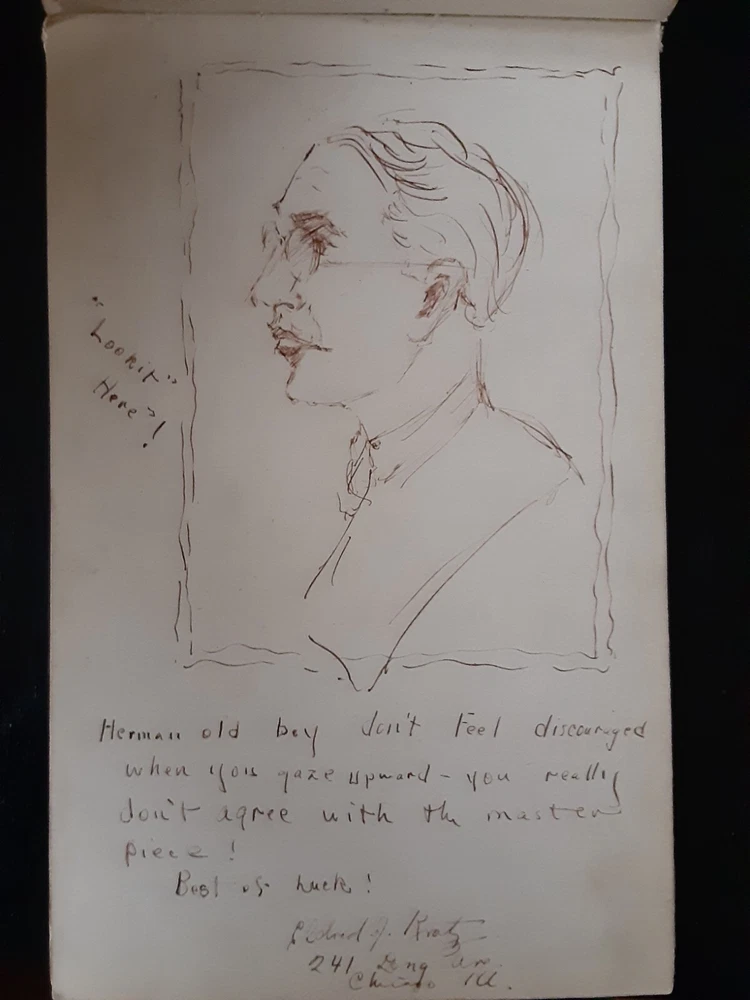 "Lookit"
Here"!
Herman old boy don't feel discouraged
when you gaze upward - you really
don't agree with the master
piece!
Best of Luck!
J. Kratz
241 Long Ave.
Chicago Ill.